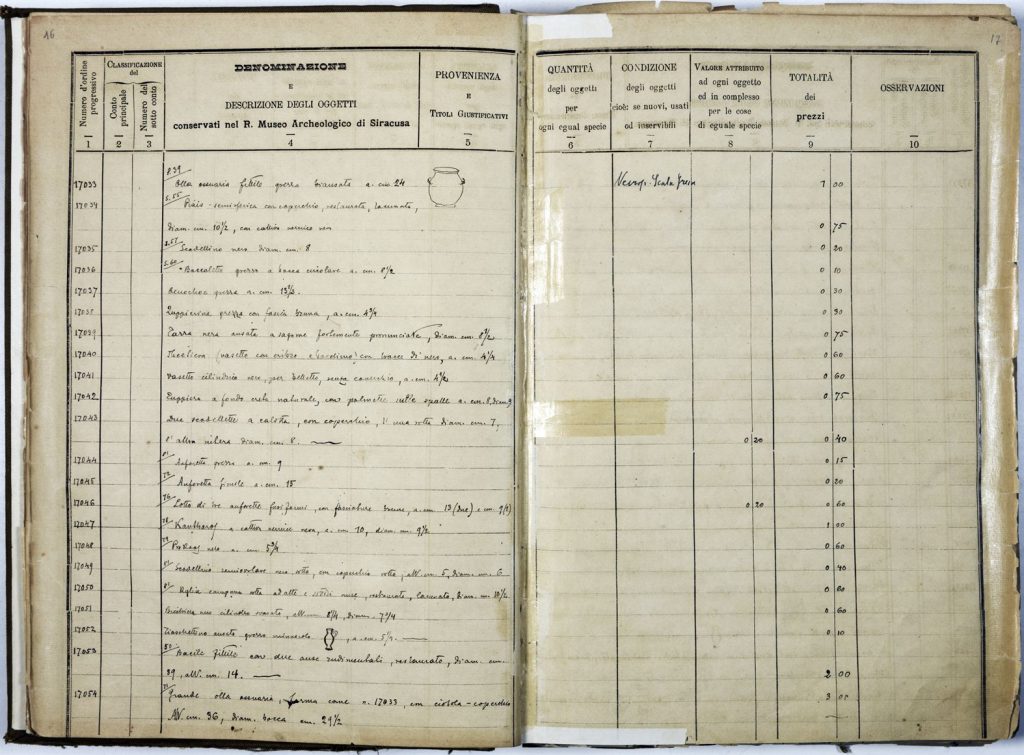 16
Numero d'ordine progressivo
1
CLASSIFICAZIONE
del
Conto principale
2
Numero del sotto conto
3
DENOMINAZIONE
E
DESCRIZIONE DEGLI OGGETTI
conservati nel R. Museo Archeologico di Siracusa
4
PROVENIENZA
E
TITOLI GIUSTIFICATIVI
5
17033 Olla ossuaria fittile grezza biansata a. cm. 24
17034 Pisside semisferica con coperchio, restaurata, lacunata,
diam. cm. 10 1/2, con cattiva vernice nera
17035 Scodellino nero diam. cm. 8
17036 Boccaletto grezzo a bocca circolare a. cm. 8 1/2
17037 Oenochoe grezza a. cm.
17038 Zuppierina grezza con fascia bruna, a. cm.
17039 Tazza nera ansata a sagome fortemente pronunciate, diam. cm.
17040 (vasetto con cribro e ) con tracce di nero, a. cm. 4 3/4
17041 Vasetto cilindrico nero, per belletto, senza coperchio, a. cm. 4 1/2
17042 Zuppiera a fondo creta naturale, con palmette sulle spalle a. cm. 8, diam. 9
17043 Due scodellette a calotta, con coperchio, l'una rotta diam. cm. 7,
l'altra diam. cm. 8.
17044 Anforetta grezza a. cm. 9
17045 Anforetta a. cm. 15
17046 Lotto di tre anforette fusiformi, con fasciature brune, a. cm. 13 (due) e cm.
17047 Kantharos a cattiva vernice nera, a. cm. 10, diam. cm. 9 1/2
17048 nero a. cm. 5 3/4
17049 Scodellino nero rotto, con coperchio rotto, alt. cm. 5, diam. cm. 6
17050 Kylix campana restaurata, lacunata, diam. cm. 10 1/2
17051 nero cilindro svasato, alt. cm. 8 1/4, diam. 7 3/4
17052 Fiaschettino ansato grezzo minuscolo, a. cm.
17053 Bacile fittile con due anse rudimentali, restaurato, diam. cm.
39, alt. cm. 14.
17054 Grande olla ossuaria, forma come n. 17033, con ciotola-coperchio
Alt. cm. 36, diam. bocca cm. 29 1/2
17
QUANTITÀ
degli oggetti
per
ogni egual specie
6
CONDIZIONE
degli oggetti
cioè: se nuovi, usati
od inservibili
7
VALORE ATTRIBUITO
ad ogni oggetto
ed in complesso
per le cose
di eguale specie
8
TOTALITÀ
dei
prezzi
9
OSSERVAZIONI
10
Necrop. Scala Greca 1 00
0 75
0 20
0 10
0 30
0 30
0 75
0 60
0 60
0 75
0 20 0 40
0 15
0 20
0 20 0 60
1 00
0 60
0 40
0 60
0 60
0 10
2 00
3 00